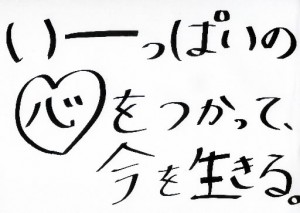 いーっぱいの
心をつかって、
今を生きる。